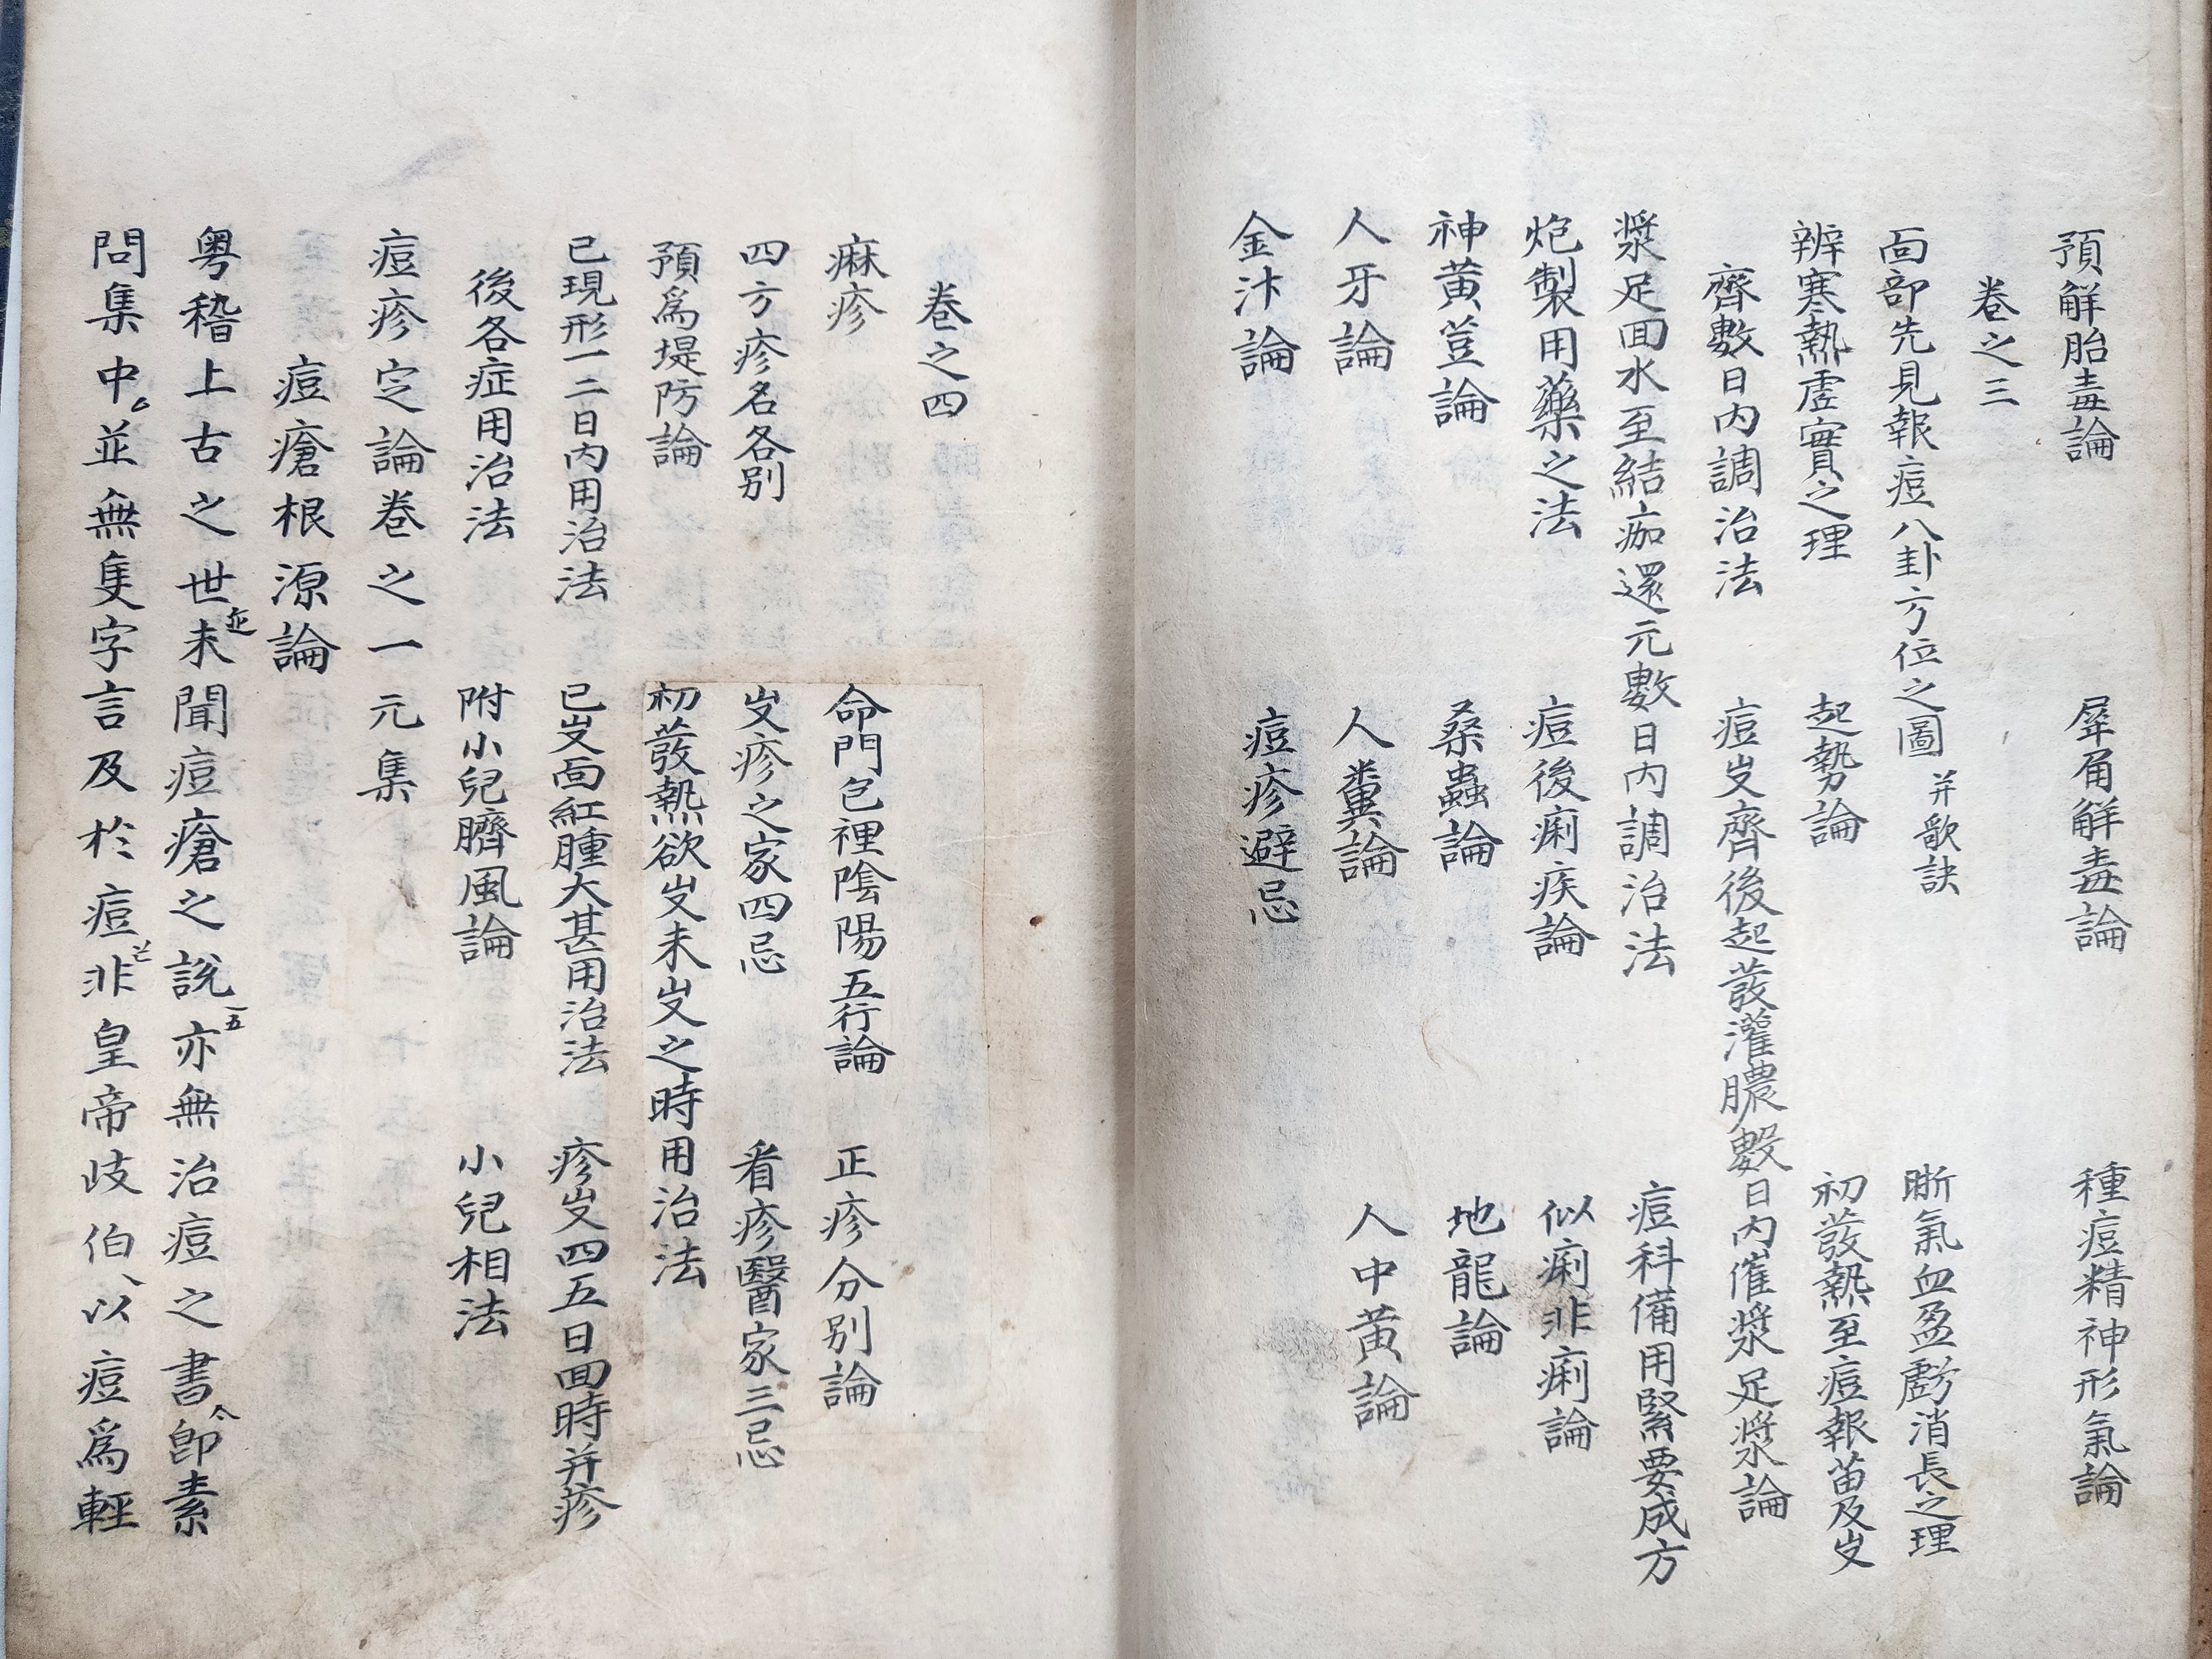 預解胎毒論 犀角解毒論 種痘精神形氣論
卷之三
面部先見報痘八卦方位之圖 并歌訣 晣氣血盈虧消長之理
辨寒熱虛實之理 起勢論 初發熱至痘報苗及出
齊數日內調治法 痘出齊後起發灌膿數日內催漿足漿論
漿足回水至結痂還元數日內調治法 痘科備用緊要成方
炮製用藥之法 痘後痢疾論 似痢非痢論
神黃荳論 桑蟲論 地龍論
人牙論 人糞論 人中黃論
金汁論 痘疹避忌
卷之四
痳疹 命門包裡陰陽五行論 正疹分別論
四方疹名各別 出疹之家四忌 看疹醫家三忌
預爲堤防論 初發熱欲出未出之時用治法
已現形一二日內用治法 已出面紅腫大甚用治法 疹出四五日回時并疹
後各症用治法 附小兒臍風論 小兒相法
痘疹定論卷之一 元集
痘瘡根源論
粵稽上古之世並未聞痘瘡之說亦無治痘之書即素
問集中並無隻字言及於痘非皇帝岐伯以痘爲輕